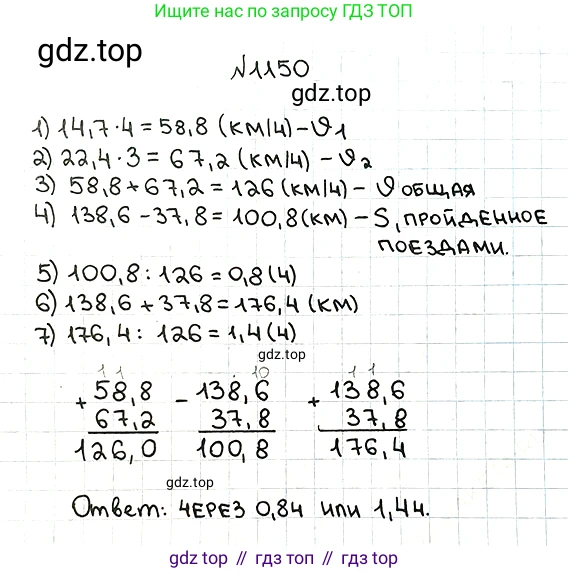 Ищите нас по запросу ГДЗ ТОП
gdz.top
№1150
gdz.top
1) 14,7·4=58,8 (км/ч)-υ1
2) 22,4·3=67,2(км/ч) - υ2
3) 58,8+67,2=126(км/ч)- υ общая
4) 138,6-37,8=100,8(км)-S, пройденное
поездами.
5) 100,8:126=0,8(ч)
6) 138,6+37,8=176,4(км)
7) 176,4: 126=1,4(ч)
gdz.top
1 1 10 1 1
+ 58,8 - 138,6 + 138,6
67,2 37,8 37,8
126,0 100,8 176,4
gdz.top
Ответ: через 0,8ч или 1,4ч.
gdz.top // гдз топ // гдз.топ